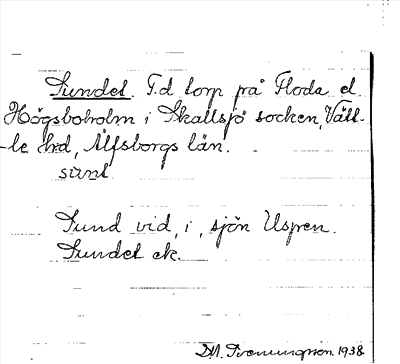 Sundet. F.d torp på Floda el.
Högsboholm i Skallsjö socken, Vätt-
-le hrd, Älfsborgs län.
sunt
Sund vid, i, sjön Uspen.
Sundet ck.
1938